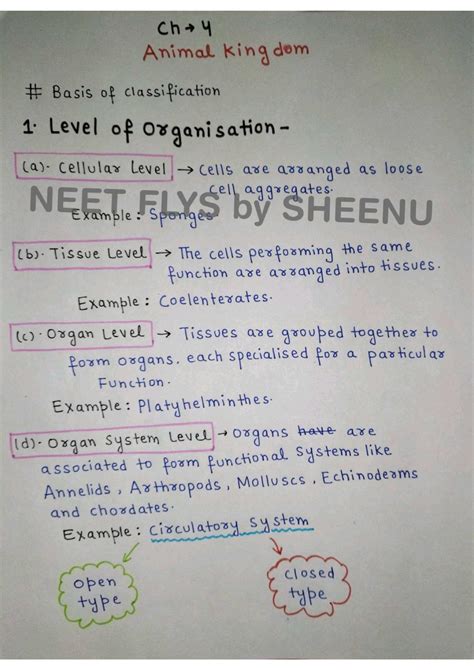 Ch → 4
Animal kingdom
# Basis of classification
1. Level of Organisation -
(a). Cellular Level → Cells are arranged as loose
cell aggregates.
NEET FLYS by SHEENU
Example : Sponges
(b). Tissue Level → The cells performing the same
function are arranged into tissues.
Example : Coelenterates.
(c). Organ Level → Tissues are grouped together to
form organs, each specialised for a particular
Function.
Example : Platyhelminthes.
(d). Organ System Level → Organs have are
associated to form functional systems like
Annelids, Arthropods, Molluscs, Echinoderms
and chordates.
Example : Circulatory System
open
type
closed
type